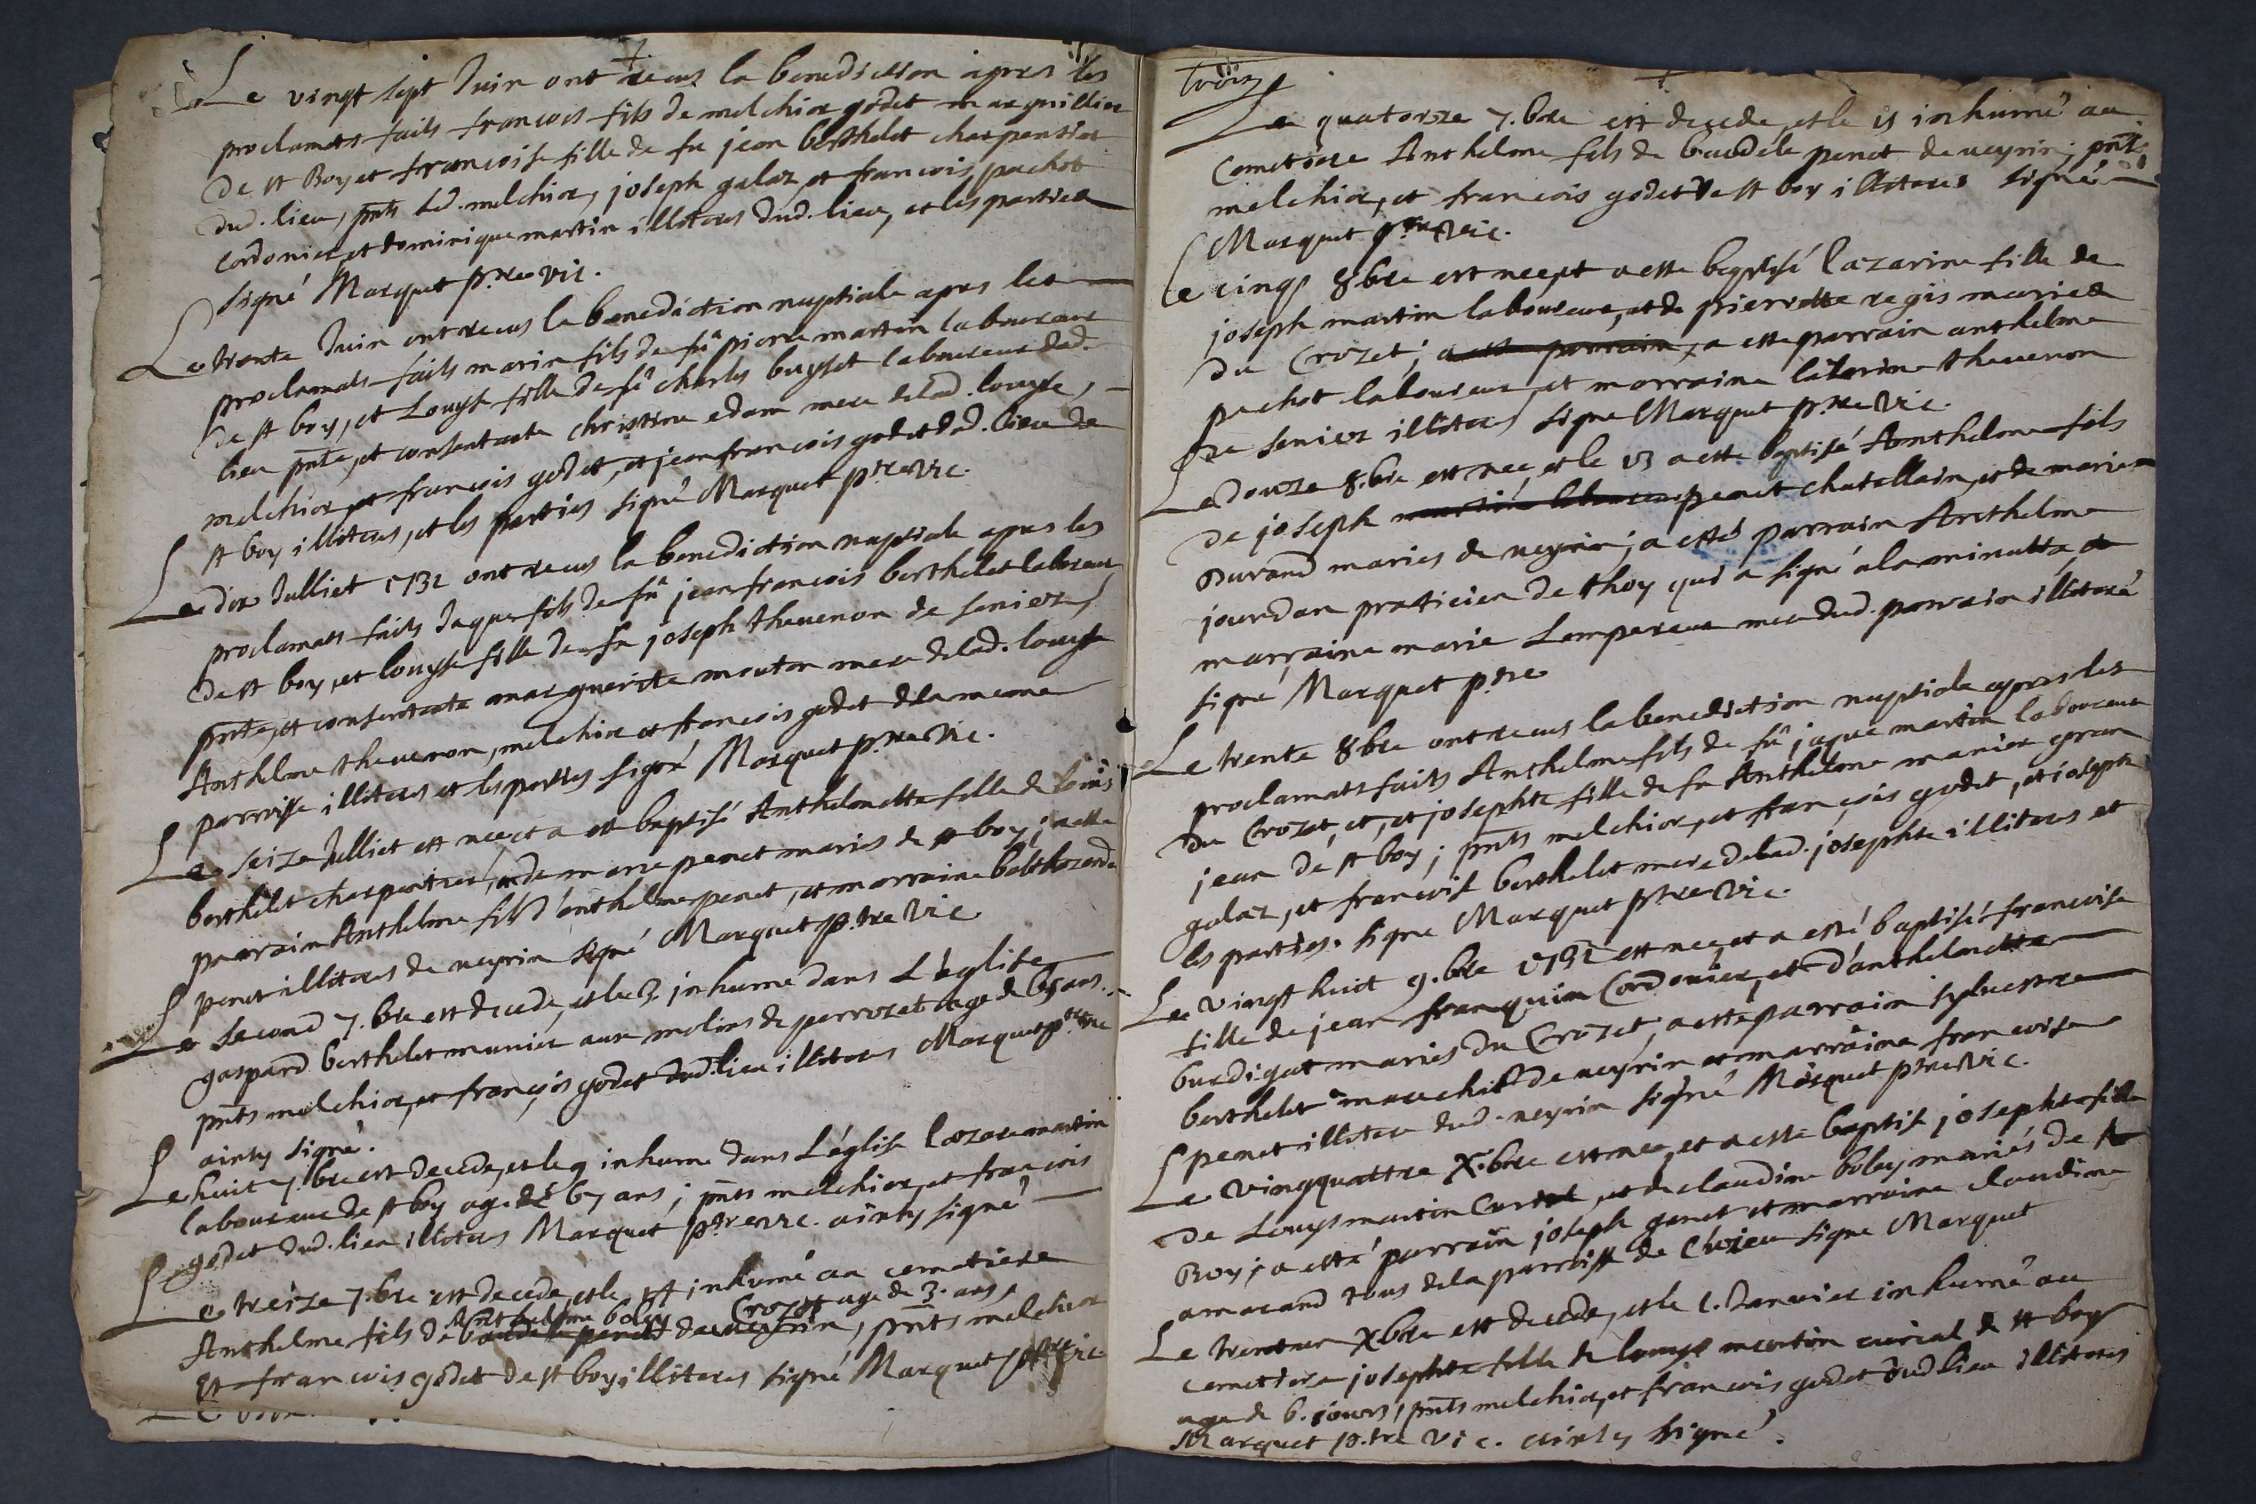 Le vingt sept Juin ont recus la benediction apres les
proclamats faits francois fils de melchior godet marguillier
de st Boy et francoise fille de fu jean berthelet charpentier
dud. lieu, pnts led. melchior, joseph galaz et francois pachot
cordonier, et dominique martin illiteres dud. lieu, et les parties
signé Marquet p.tre vic.
Le trente Juin ont recus la benediction nuptiale apres les
proclamats faits marin fils de fû pierre martin laboureur
de st boy, et Louyse fille de fû charles buysset laboureur dud.
lieu pnte, et consentante christine edam mere delad. louyse,
melchior et francois godet, et jean francois godet dud. lieu de
st boy illiteres, et les parties signé Marquet p.tre vic.
Le dix Julliet 1732 ont recus la benediction nuptiale apres les
proclamats faits Jaque fils de fû jean francois berthelet laboureur
de st boy, et louyse fille de fu joseph thevenon de seniez,
pnte, et consentante marguerite mouton mere delad. louyse
Anthelme thevenon, melchior et francois godet dela meme
parroisse illiteres et les parties signé Marquet p.tre vic.
Le seize Julliet est nee et a eté baptisé Anthelmette fille de louis
berthelet charpentier, et de marie penet mariés de st boy; a esté
parrain Anthelme fils d'anthelme penet, et marraine balthazarde
penet illiteres de neyrin signé Marquet p.tre vic
Le second 7.bre est decedé, et le 3 inhumé dans L'église
gaspard berthelet munier aux molins de perrozet age de 65 ans.
pnts melchior, et françois godet dud. lieu illiteres Marquet p.tre vic
ainsy signé.
Le huit 7.bre est decedé, et le 9 inhumé dans L'église lazare martin
laboureur de st boy agé de 67 ans; pnts melchior, et francois
godet dud. lieu illiteres Marquet p.tre vic. ainsy signé
Le treize 7.bre est decedé, et le inhumé au cemetiere
Anthelme boley Crozet
Anthelme fils de baudele penet de neyrin, age de 3. ans, pnts melchior
et francois godet de st boy illiteres signé Marquet p.tre vic
trois
Le quatorze 7.bre est decedé, et le 15 inhumé au
cemetiere Anthelme fils de baudele penet de neyrin; pnts
melchior, et francois godet de st boy illiteres signé
Marquet p.tre vic.
Le cinq 8bre est nee, et a esté baptisé lazarine fille de
joseph martin laboureur, et de pierrette regis mariés
du Crozet; a esté parrain, a esté parrain anthelme
pachot laboureur et marraine lazarine thevenon
de seniez illiteres signe Marquet p.tre vic.
Le douze 8.bre est nee, et le 13 a esté baptisé Anthelme fils
de joseph martin laboureur penet chatellain, et de marie
Durand mariés de neyrin; a esté parrain Anthelme
jourdan praticien de thoy qui a signé a la minutte, et
marraine marie Lempereur mere dud. parrain illiteré
signé Marquet p.tre
Le trente 8bre ont recus la benediction nuptiale apres les
proclamats faits Anthelme fils de fû jaque martin laboureur
du Crozet, et, et josephte fille de fu Anthelme manier gran
jean de st boy; pnts melchior, et françois godet, et joseph
galaz, et francoise berthelet mere delad. josephte illiteres et
les parties. signe Marquet p.tre vic.
Le vingt huit 9.bre 1732 est nee, et a esté baptisé francoise
fille de jean franquin Cordonier, et d'anthelmette
burdigat mariés du Crozet; a esté parrain sylvestre
berthelet marechal de neyrin et marraine francoise
penet illitere dud. neyrin signé Marquet p.tre vic.
Le vingquattre X.bre est nee, et a esté baptisé josephte fille
de Louys martin curial, et de claudine boley mariés de st
Boy; a esté parrain joseph genet et marraine claudine
amarand tous dela parroisse de Chizeu signe Marquet
Le trenteun Xbre est decedé, et le 1. Janvier inhumé au
cemetiere josephte fille de louys martin curial de st boy
age de 6. jours, pnts melchior, et francois godet dud lieu illiteres
Marquet p.tre vic. ainsy signé.